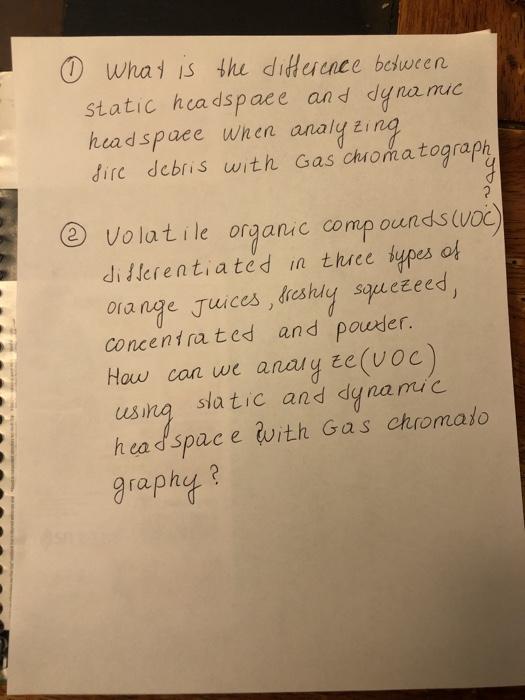 ① What is the difference between
static headspace and dynamic
headspace when analyzing
fire debris with Gas chromatography
?
② Volatile organic compounds (VOC)
differentiated in three types of
orange juices, freshly squezeed,
concentrated and powder.
How can we analyze (VOC)
using static and dynamic
headspace with Gas chromato
graphy?